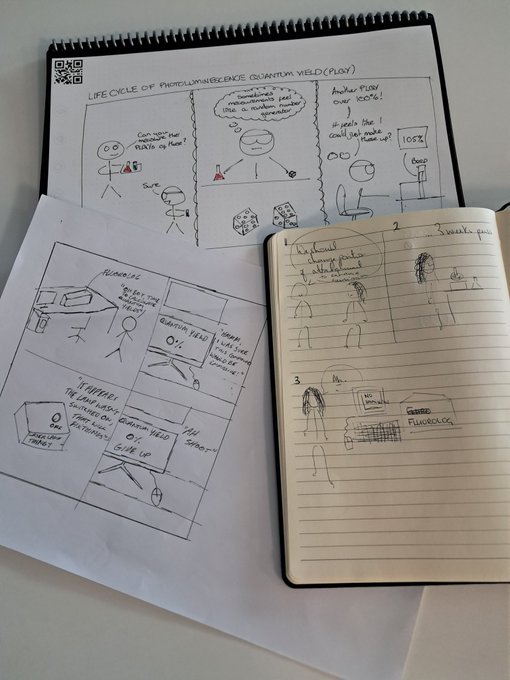 LIFE CYCLE OF PHOTOLUMINESCENCE QUANTUM YIELD (PLQY)
Can you
measure the
PLQYs of these?
Sure
Sometimes
measurements feel
like a random number
generator
Another PLQY
over 100%!
It feels like I
could just make
these up?
105%
FLUOROLOG
TIME
TO CALCULATE
QUANTUM
YIELDS"
QUANTUM YIELD
0%
"HMMM,
I WAS SURE
THIS COMPOUND
WOULD BE
EMISSIVE.."
"IT APPEARS
THE LAMP WASN'T
SWITCHED ON
THAT WILL
FIX THINGS"
0
LASER LAMP
THING?
QUANTUM YIELD
0%
GIVE UP
"AH
SHOOT"
1
We should
change
to enhance
2
3 weeks
3
Ah..
NO
FLUOROLOG